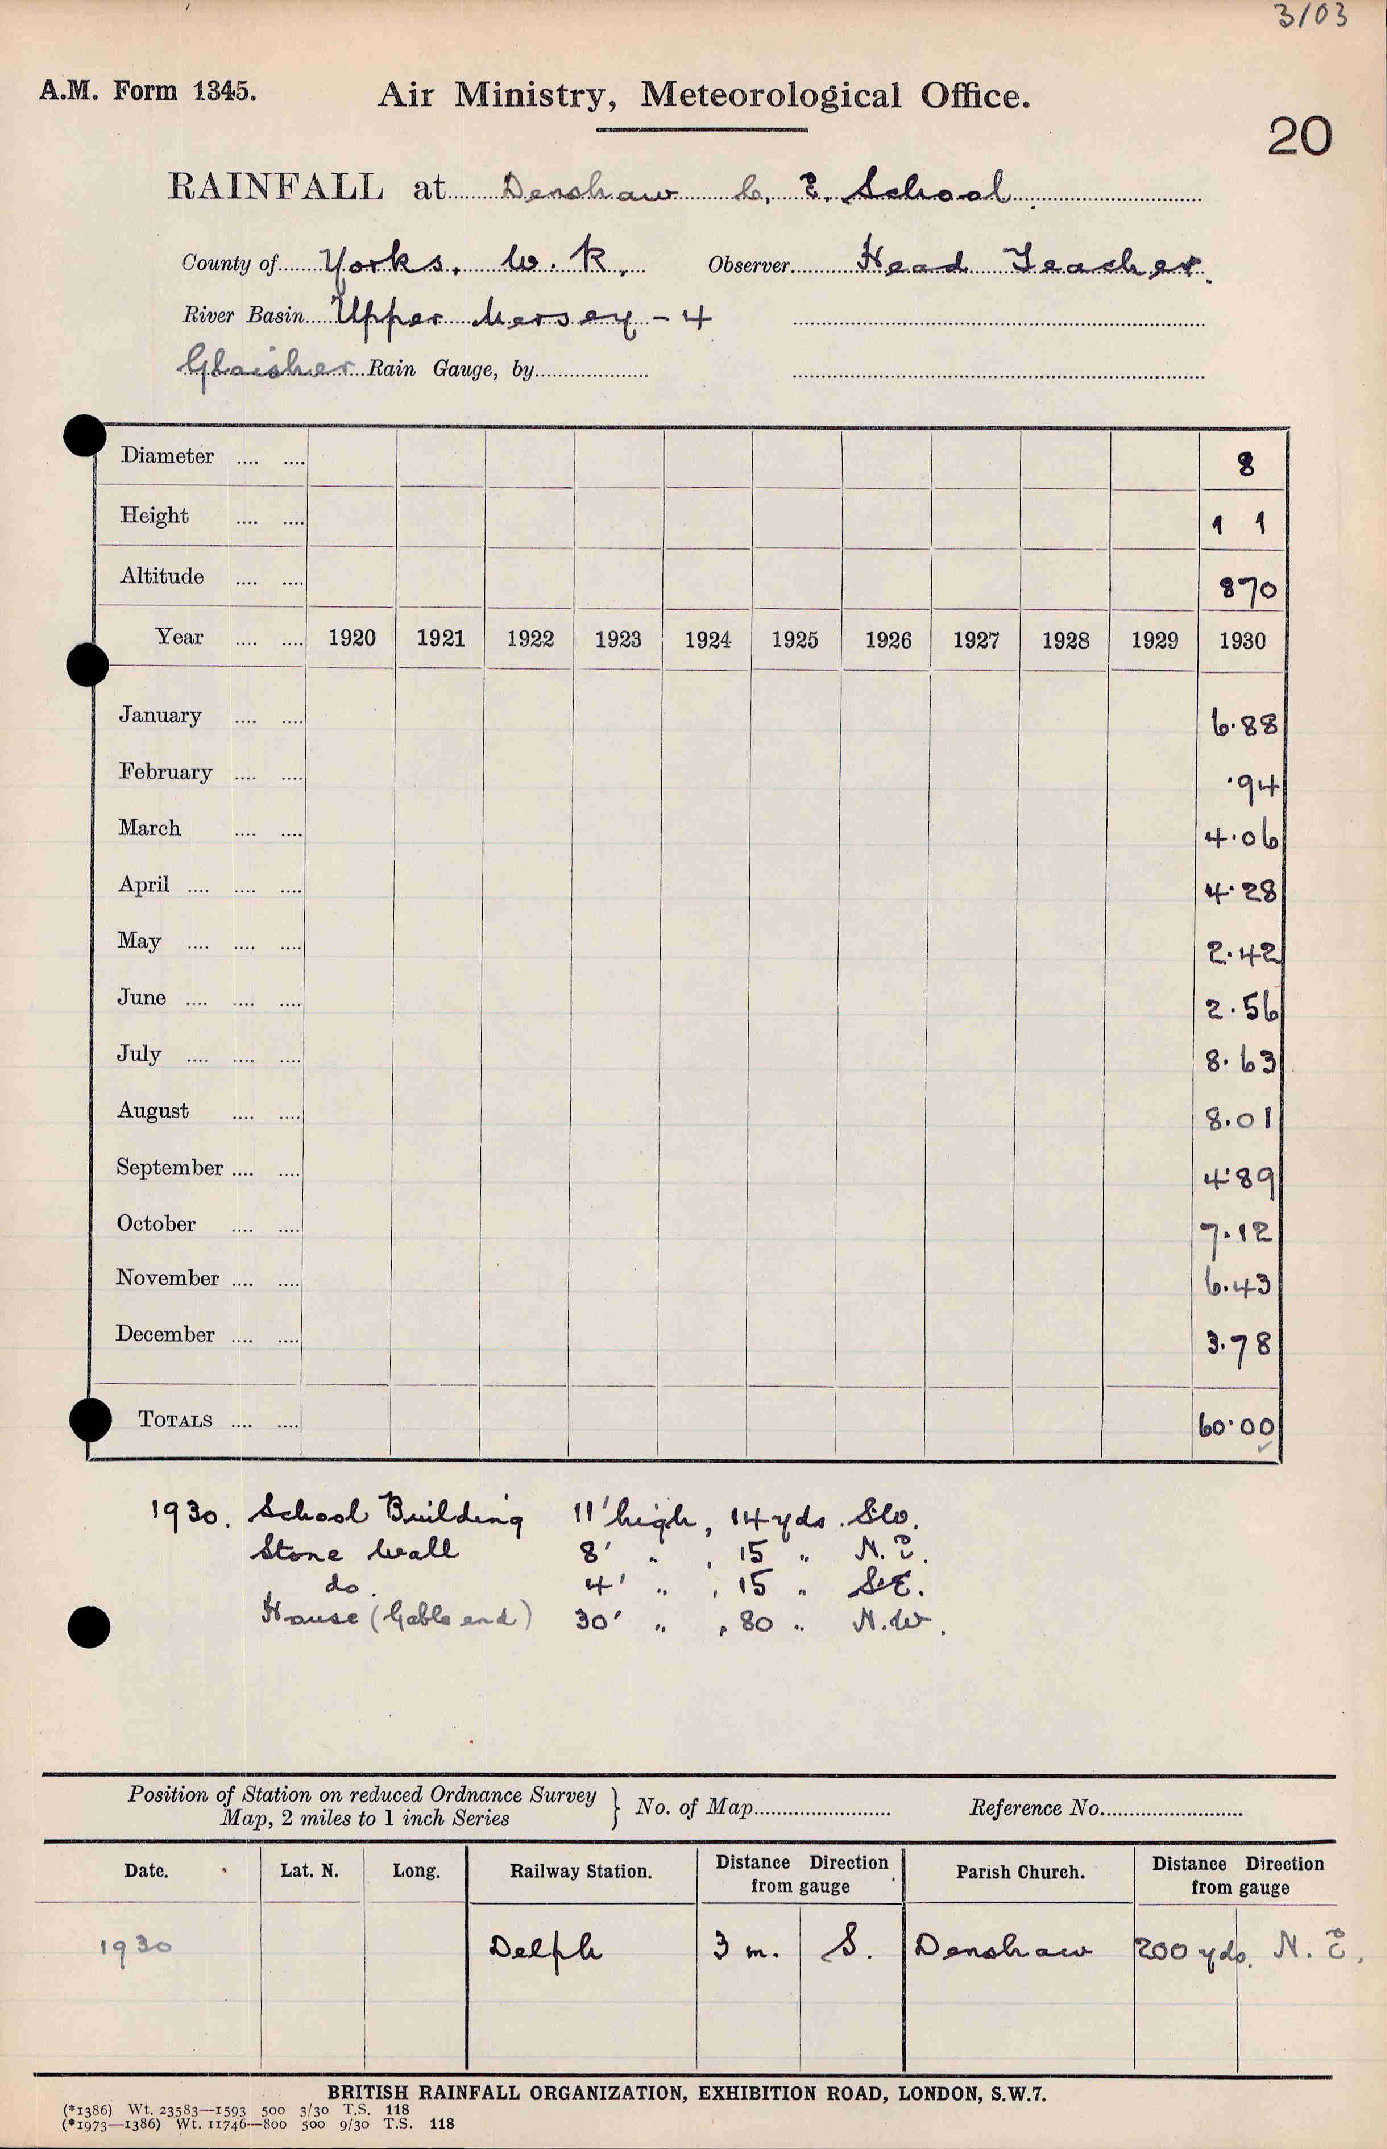 3/03
A.M. Form 1345. Air Ministry, Meteorological Office.
20
RAINFALL at Denshaw C. E. School.
County of Yorks. W. R. Observer Head Teacher.
River Basin Upper Mersey - 4
Glaisher Rain Gauge, by
Diameter 8
Height 1 1
Altitude 870
Year 1920 1921 1922 1923 1924 1925 1926 1927 1928 1929 1930
January 6.88
February .94
March 4.06
April 4.28
May 2.42
June 2.56
July 8.63
August 8.01
September 4.89
October 7.12
November 6.43
December 3.78
TOTALS 60.00
1930. School Building 11' high, 14 yds. SW.
Stone Wall 8' " , 15 " N.E.
do. 4' " , 15 " S.E.
House (Gable end) 30' " , 80 " N.W.
Position of Station on reduced Ordnance Survey
Map, 2 miles to 1 inch Series } No. of Map Reference No.
Date. Lat. N. Long. Railway Station. Distance Direction from gauge Parish Church. Distance Direction from gauge
1930 Delph 3 m. S. Denshaw 200 yds. N. E.
BRITISH RAINFALL ORGANIZATION, EXHIBITION ROAD, LONDON, S.W.7.
(*1386) Wt. 23583—1593 500 3/30 T.S. 118
(*1973—1386) Wt. 11746—800 500 9/30 T.S. 118